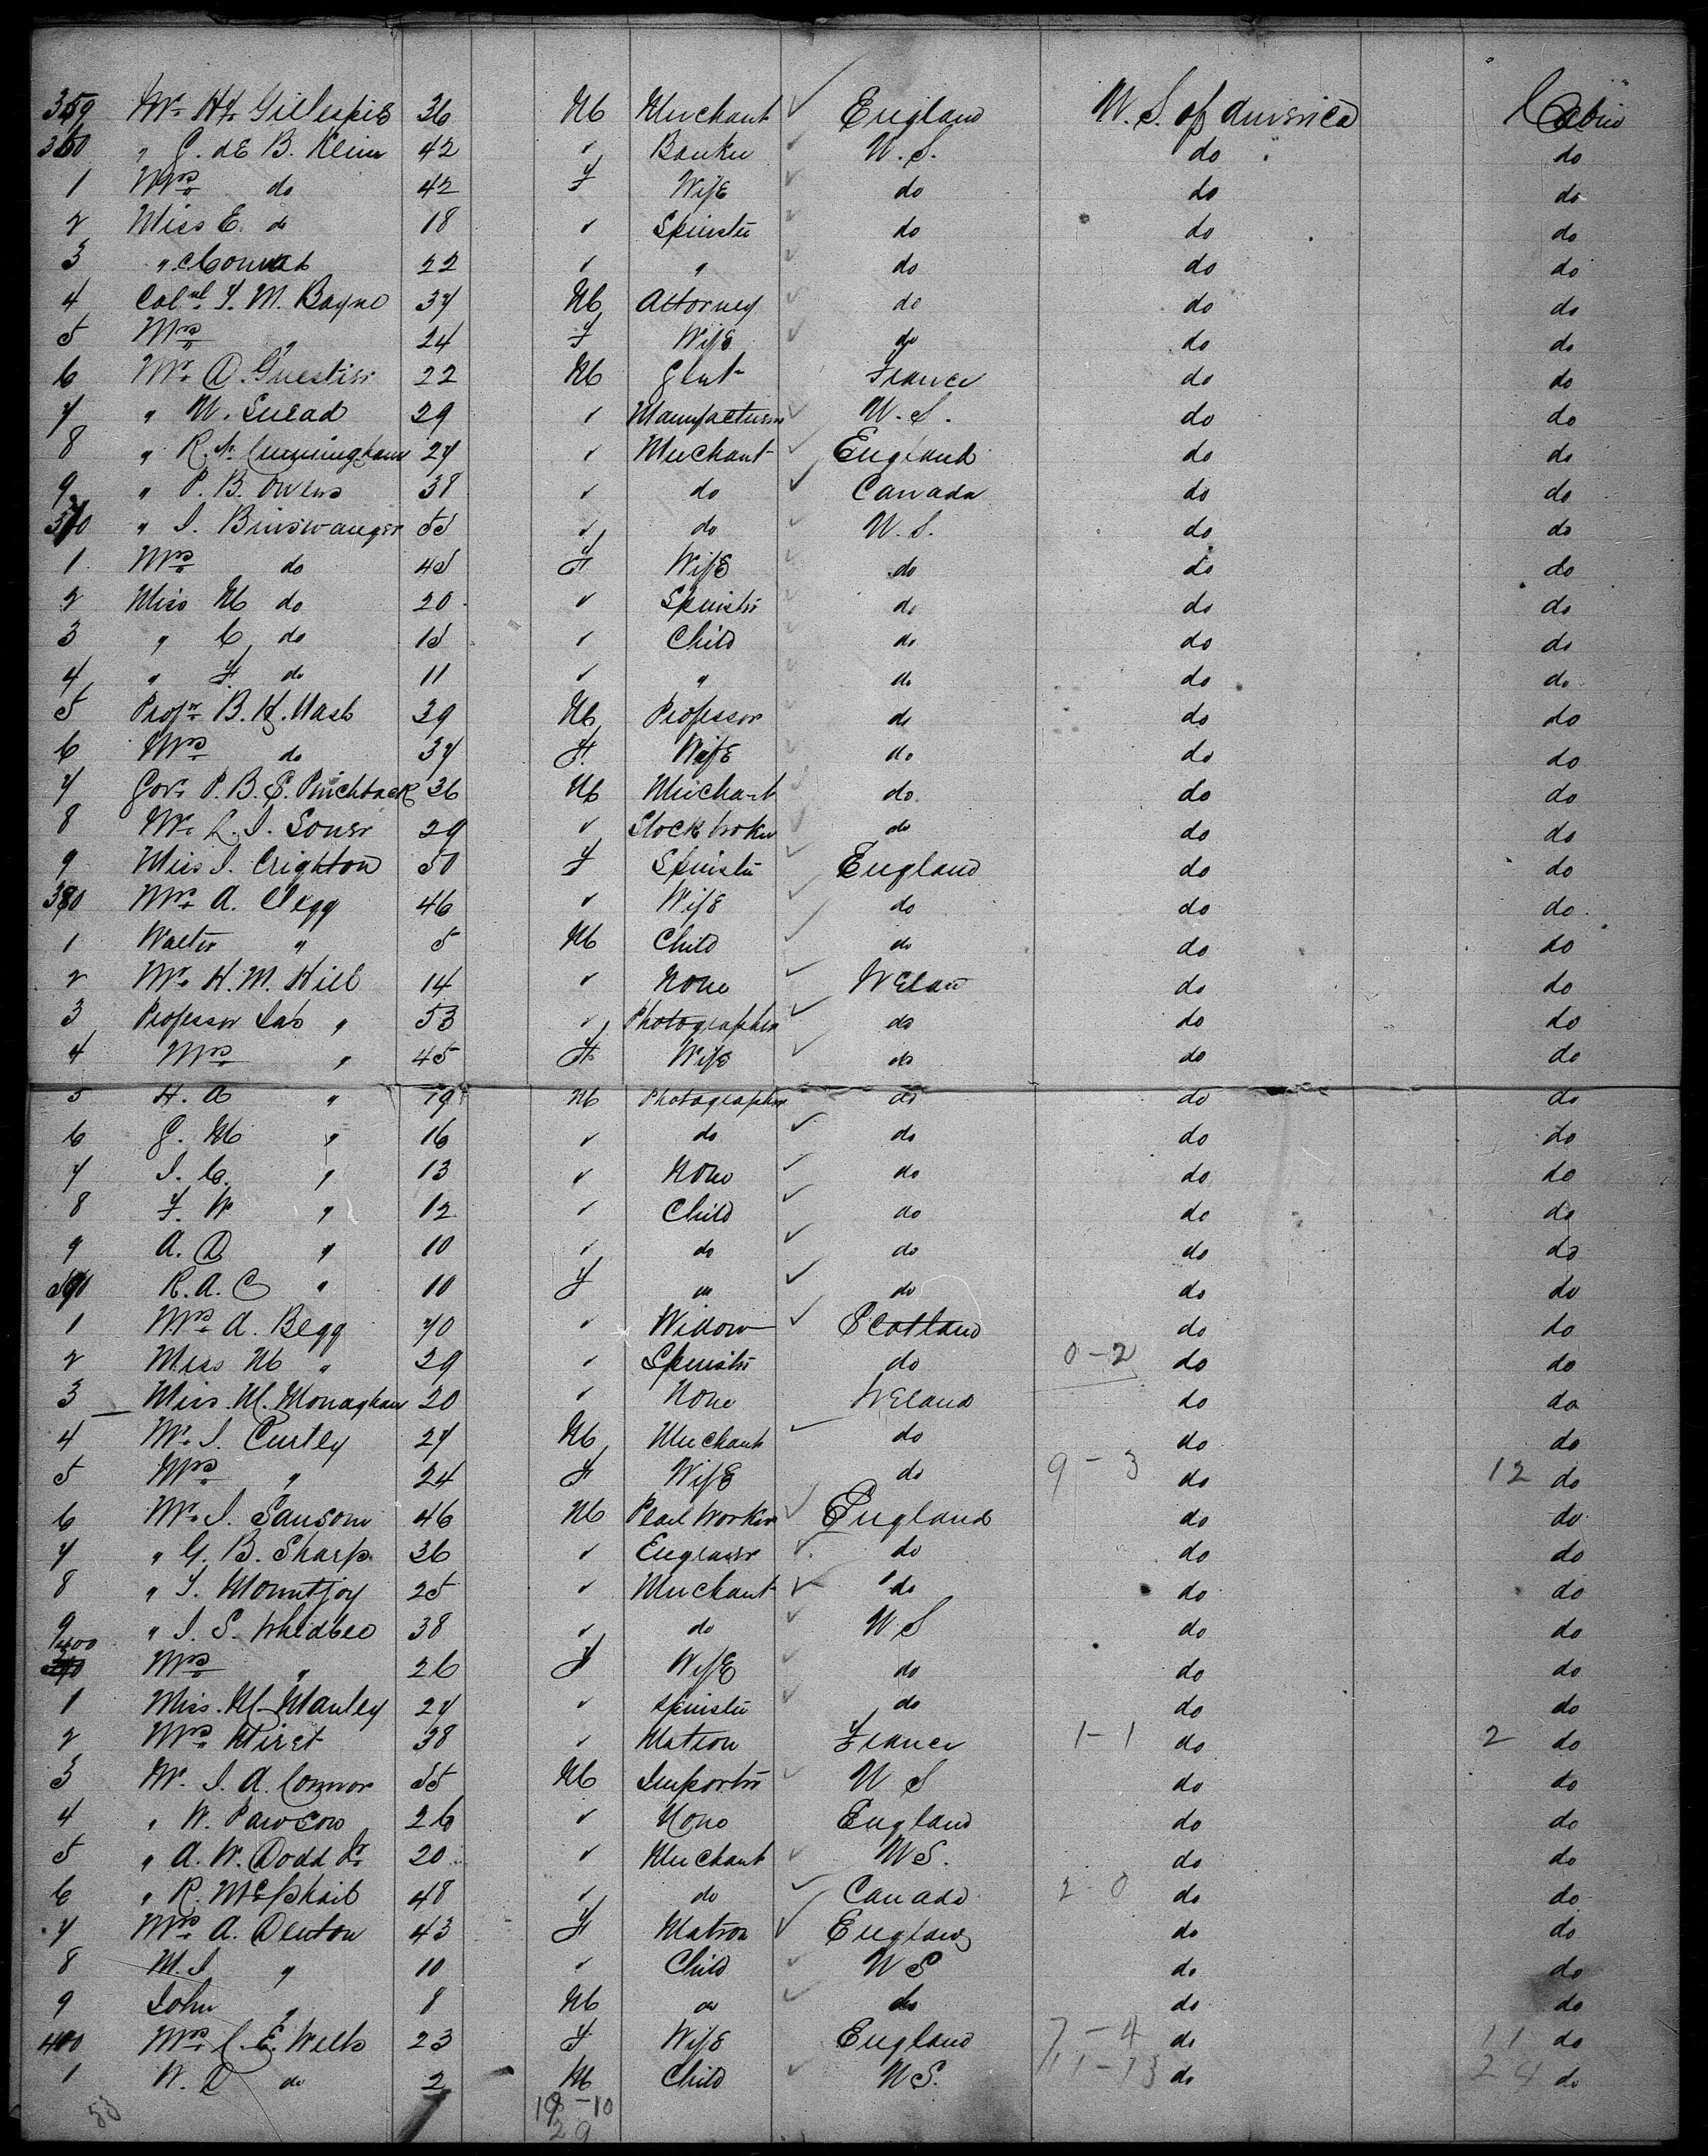 359 Mr. H. Gillespie 36 M Merchant England U. S. of America Cabin
360 " G. de B. Keim 42 " Banker U.S. do do
1 Mrs do 42 F Wife do do do
2 Miss E. do 18 " Spinster do do do
3 " 22 " " do do do
4 Colnl T. M. Bayne 37 M Attorney do do do
5 Mrs " 24 F Wife do do do
6 Mr. D. Guestier 22 M Gent France do do
7 " W. Snead 29 " Manufacturer U.S. do do
8 " R. N. Cunningham 27 " Merchant England do do
9 " P. B. Owens 38 " do Canada do do
370 " I. Binswanger 55 " do U.S. do do
1 Mrs do 45 F Wife do do do
2 Miss M do 20 " Spinster do do do
3 " C do 15 " Child do do do
4 " F. do 11 " " do do do
5 Profr B. H. Nash 39 M Professor do do do
6 Mrs do 37 F Wife do do do
7 Gov. P. B. S. Pinchback 36 M Merchant do do do
8 Mr. L. J. Souer 29 " Stock broker do do do
9 Miss J. Crighton 50 F Spinster England do do
380 Mrs A. Clegg 46 " Wife do do do
1 Walter " 5 M Child do do do
2 Mr. H. M. Hill 14 " None do do
3 Professor Jas " 53 " Photographer do do do
4 Mrs " 45 F Wife do do do
5 H. A " 19 M Photographer do do do
6 G. M " 16 " do do do do
7 J. C. " 13 " None do do do
8 F. W " 12 " Child do do do
9 A. D " 10 " do do do do
390 R. A. C " 10 F " do do do
1 Mrs A. Begg 70 " Widow Scotland do do
2 Miss M " 29 " Spinster do 0-2 do do
3 Miss. M. Monaghan 20 " None Ireland do do
4 Mr. J. Curley 27 M Merchant do do do
5 Mrs " 24 F Wife do 9-3 do 12 do
6 Mr. J. Sansom 46 M Pearl Worker England do do
7 " G. B. Sharp 36 " Engraver do do do
8 " T. Mountjoy 25 " Merchant do do do
9 " J. S. Whedbee 38 " do U S do do
400 Mrs " 26 F Wife do do do
1 Miss. M. Manley 27 " Spinster do do do
2 Mrs Hirst 38 " Matron France 1-1 do 2 do
3 Mr. J. A. Connor 55 M Importer U S do do
4 " W. Pawson 26 " None England do do
5 " A. W. Dodd Jr. 20 " Merchant U S. do do
6 " R. McPhail 48 " do Canada 2-0 do do
7 Mrs A. Denton 43 F Matron England do do
8 M. J " 10 " Child U S do do
9 John " 8 M do do do do
400 Mrs C. E. Wells 23 F Wife England 7-4 do 11 do
1 W. D do 2 M Child U S. 11-13 do 24 do
53 19-10
29